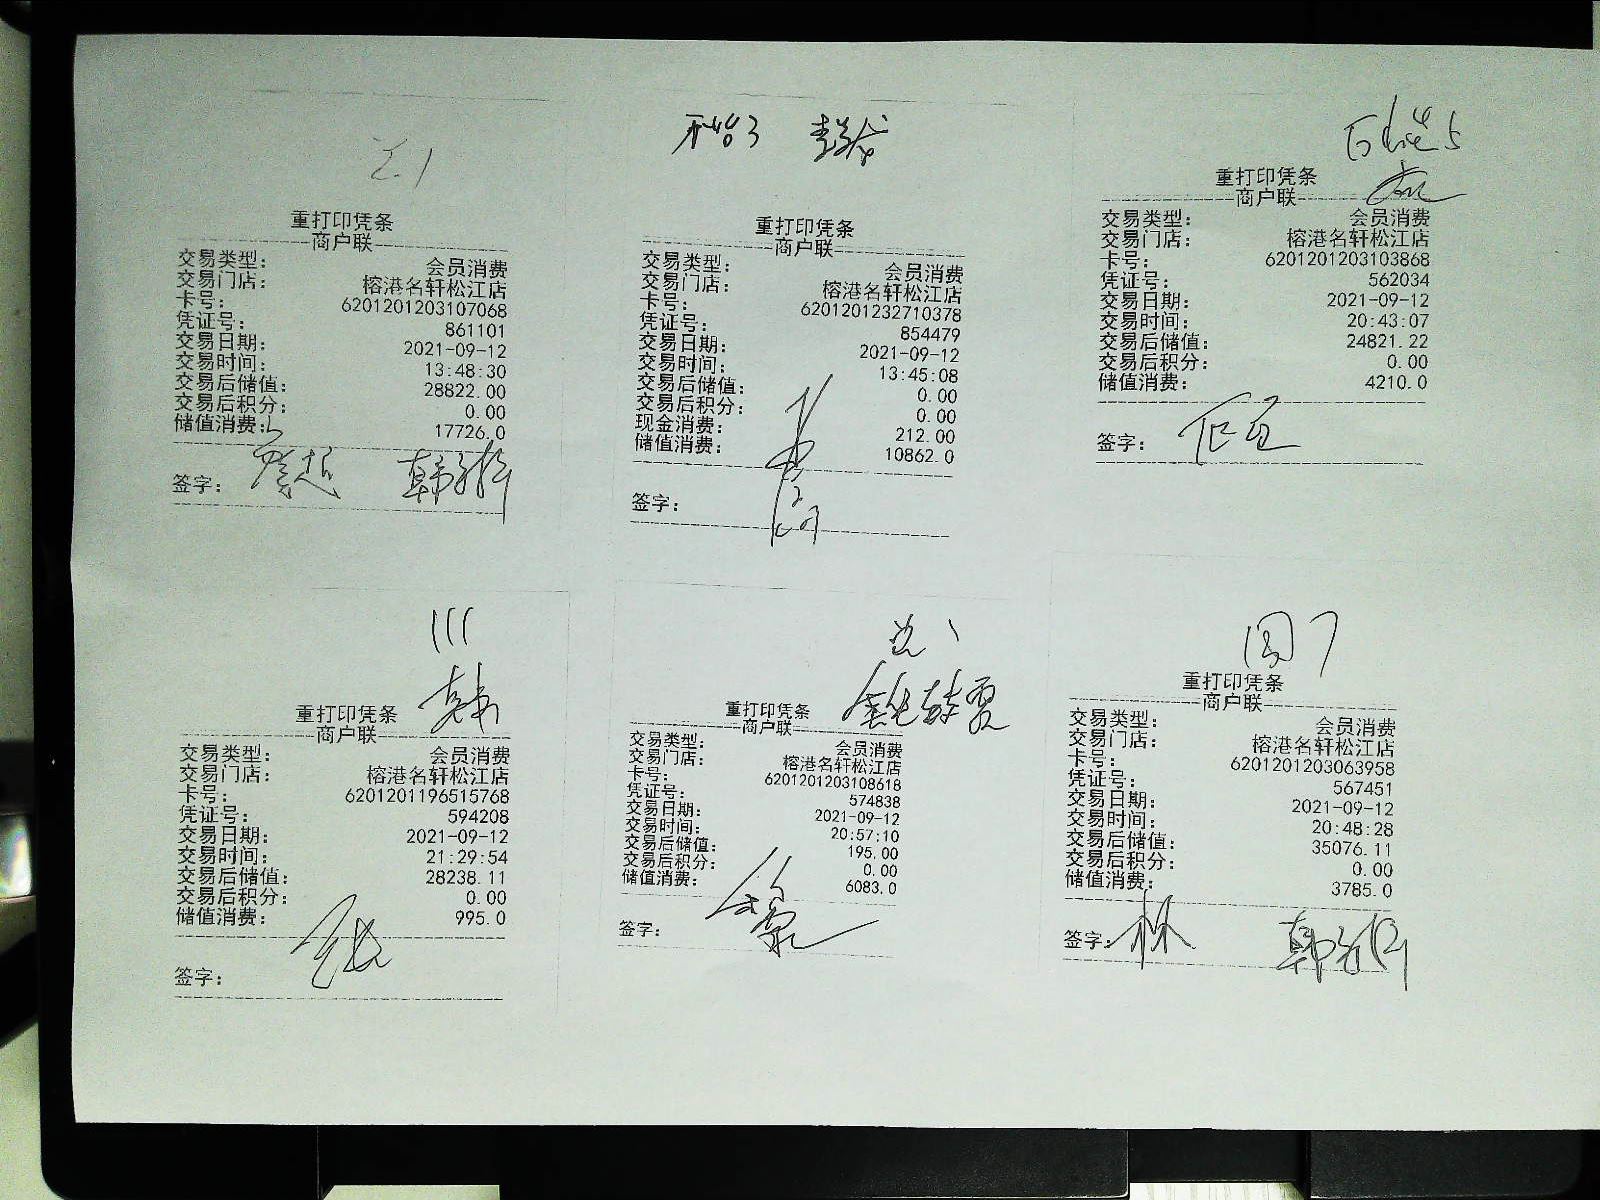 重打印凭条
商户联
交易类型： 会员消费
交易门店： 榕港名轩松江店
卡号： 6201201203107068
凭证号： 861101
交易日期： 2021-09-12
交易时间： 13:48:30
交易后储值： 28822.00
交易后积分： 0.00
储值消费： 17726.0
签字：
重打印凭条
商户联
交易类型： 会员消费
交易门店： 榕港名轩松江店
卡号： 6201201232710378
凭证号： 854479
交易日期： 2021-09-12
交易时间： 13:45:08
交易后储值： 0.00
交易后积分： 0.00
现金消费： 212.00
储值消费： 10862.0
签字：
重打印凭条
商户联
交易类型： 会员消费
交易门店： 榕港名轩松江店
卡号： 6201201203103868
凭证号： 562034
交易日期： 2021-09-12
交易时间： 20:43:07
交易后储值： 24821.22
交易后积分： 0.00
储值消费： 4210.0
签字：
111
重打印凭条
商户联
交易类型： 会员消费
交易门店： 榕港名轩松江店
卡号： 6201201196515768
凭证号： 594208
交易日期： 2021-09-12
交易时间： 21:29:54
交易后储值： 28238.11
交易后积分： 0.00
储值消费： 995.0
签字：
重打印凭条
商户联
交易类型： 会员消费
交易门店： 榕港名轩松江店
卡号： 6201201203108618
凭证号： 574838
交易日期： 2021-09-12
交易时间： 20:57:10
交易后储值： 195.00
交易后积分： 0.00
储值消费： 6083.0
签字：
重打印凭条
商户联
交易类型： 会员消费
交易门店： 榕港名轩松江店
卡号： 6201201203063958
凭证号： 567451
交易日期： 2021-09-12
交易时间： 20:48:28
交易后储值： 35076.11
交易后积分： 0.00
储值消费： 3785.0
签字： 林